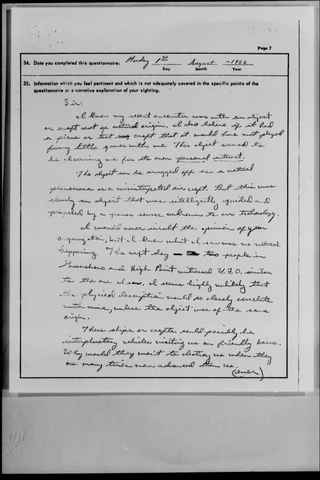 Page 7
34. Date you completed this questionnaire: Monday 1st August -1966
Day Month Year
35. Information which you feel pertinent and which is not adequately covered in the specific points of the
questionnaire or a narrative explanation of your sighting.
Sir:
I know my recent encounter was with an object
or craft not of natural origin. I also believe if it had
a plane or test craft that it would have not played
funny little games with me. This object seemed to
be observing me for its own personal interest.
The object can be shrugged off as a natural
phenomenon or a misinterpreted aircraft. But this was
clearly an object that was intelligently guided and
propelled by a power source unknown to our technology.
I would never insult the opinion of your
organization, but I know what I saw was no natural
happening. The next day two people in
Greensboro and High Point witnessed U.F.O. similar
to the one I saw. I seems highly unlikely that
the physical description would so closely correlate
with mine, unless the object was of the same
origin.
These ships or crafts could possibly be
interplanetary vehicles visiting us on friendly basis.
Why would they want to destroy us when they
are many times more advanced than us.
(over)